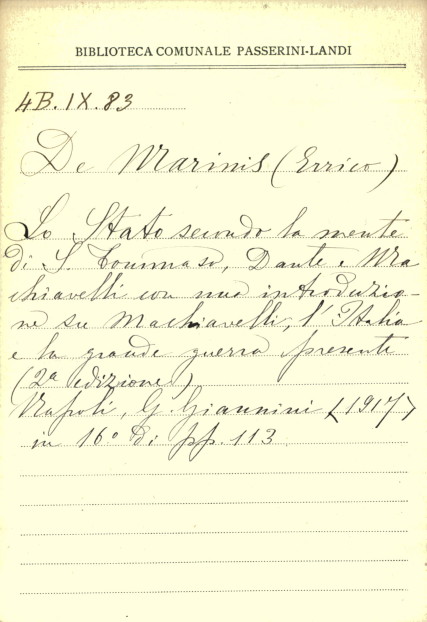 BIBLIOTECA COMUNALE PASSERINI-LANDI
4B. IX. 83
De Marinis (Errico)
Lo Stato secondo la mente
di S. Tommaso, Dante e Ma
chiavelli con una introduzio-
ne su Machiavelli, l'Italia
e la grande guerra presente
(2ª edizione)
Napoli, G. Giannini <1917>
in 16° di pp. 113